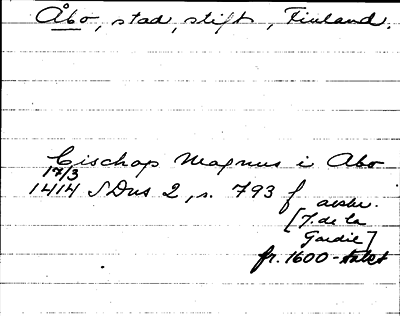 Åbo, stad, stift, Finland.
Bischop Magnus i Abo
17/3
1414 SDns 2, s. 793 f avskr.
[J. de la
Gardie]
fr. 1600-talet